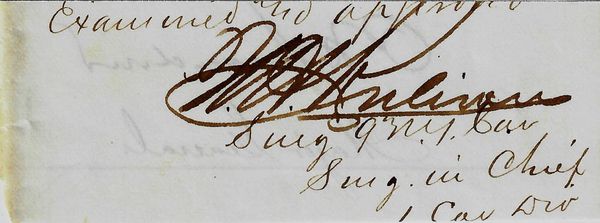 Examined and approved
W. H. Rulison
Surg 9 N.Y. Cav
Surg. in Chief
1 Cav Div